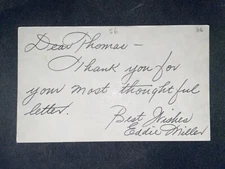 Dear Thomas —
Thank you for
your most thoughtful
letter.
Best Wishes
Eddie Miller